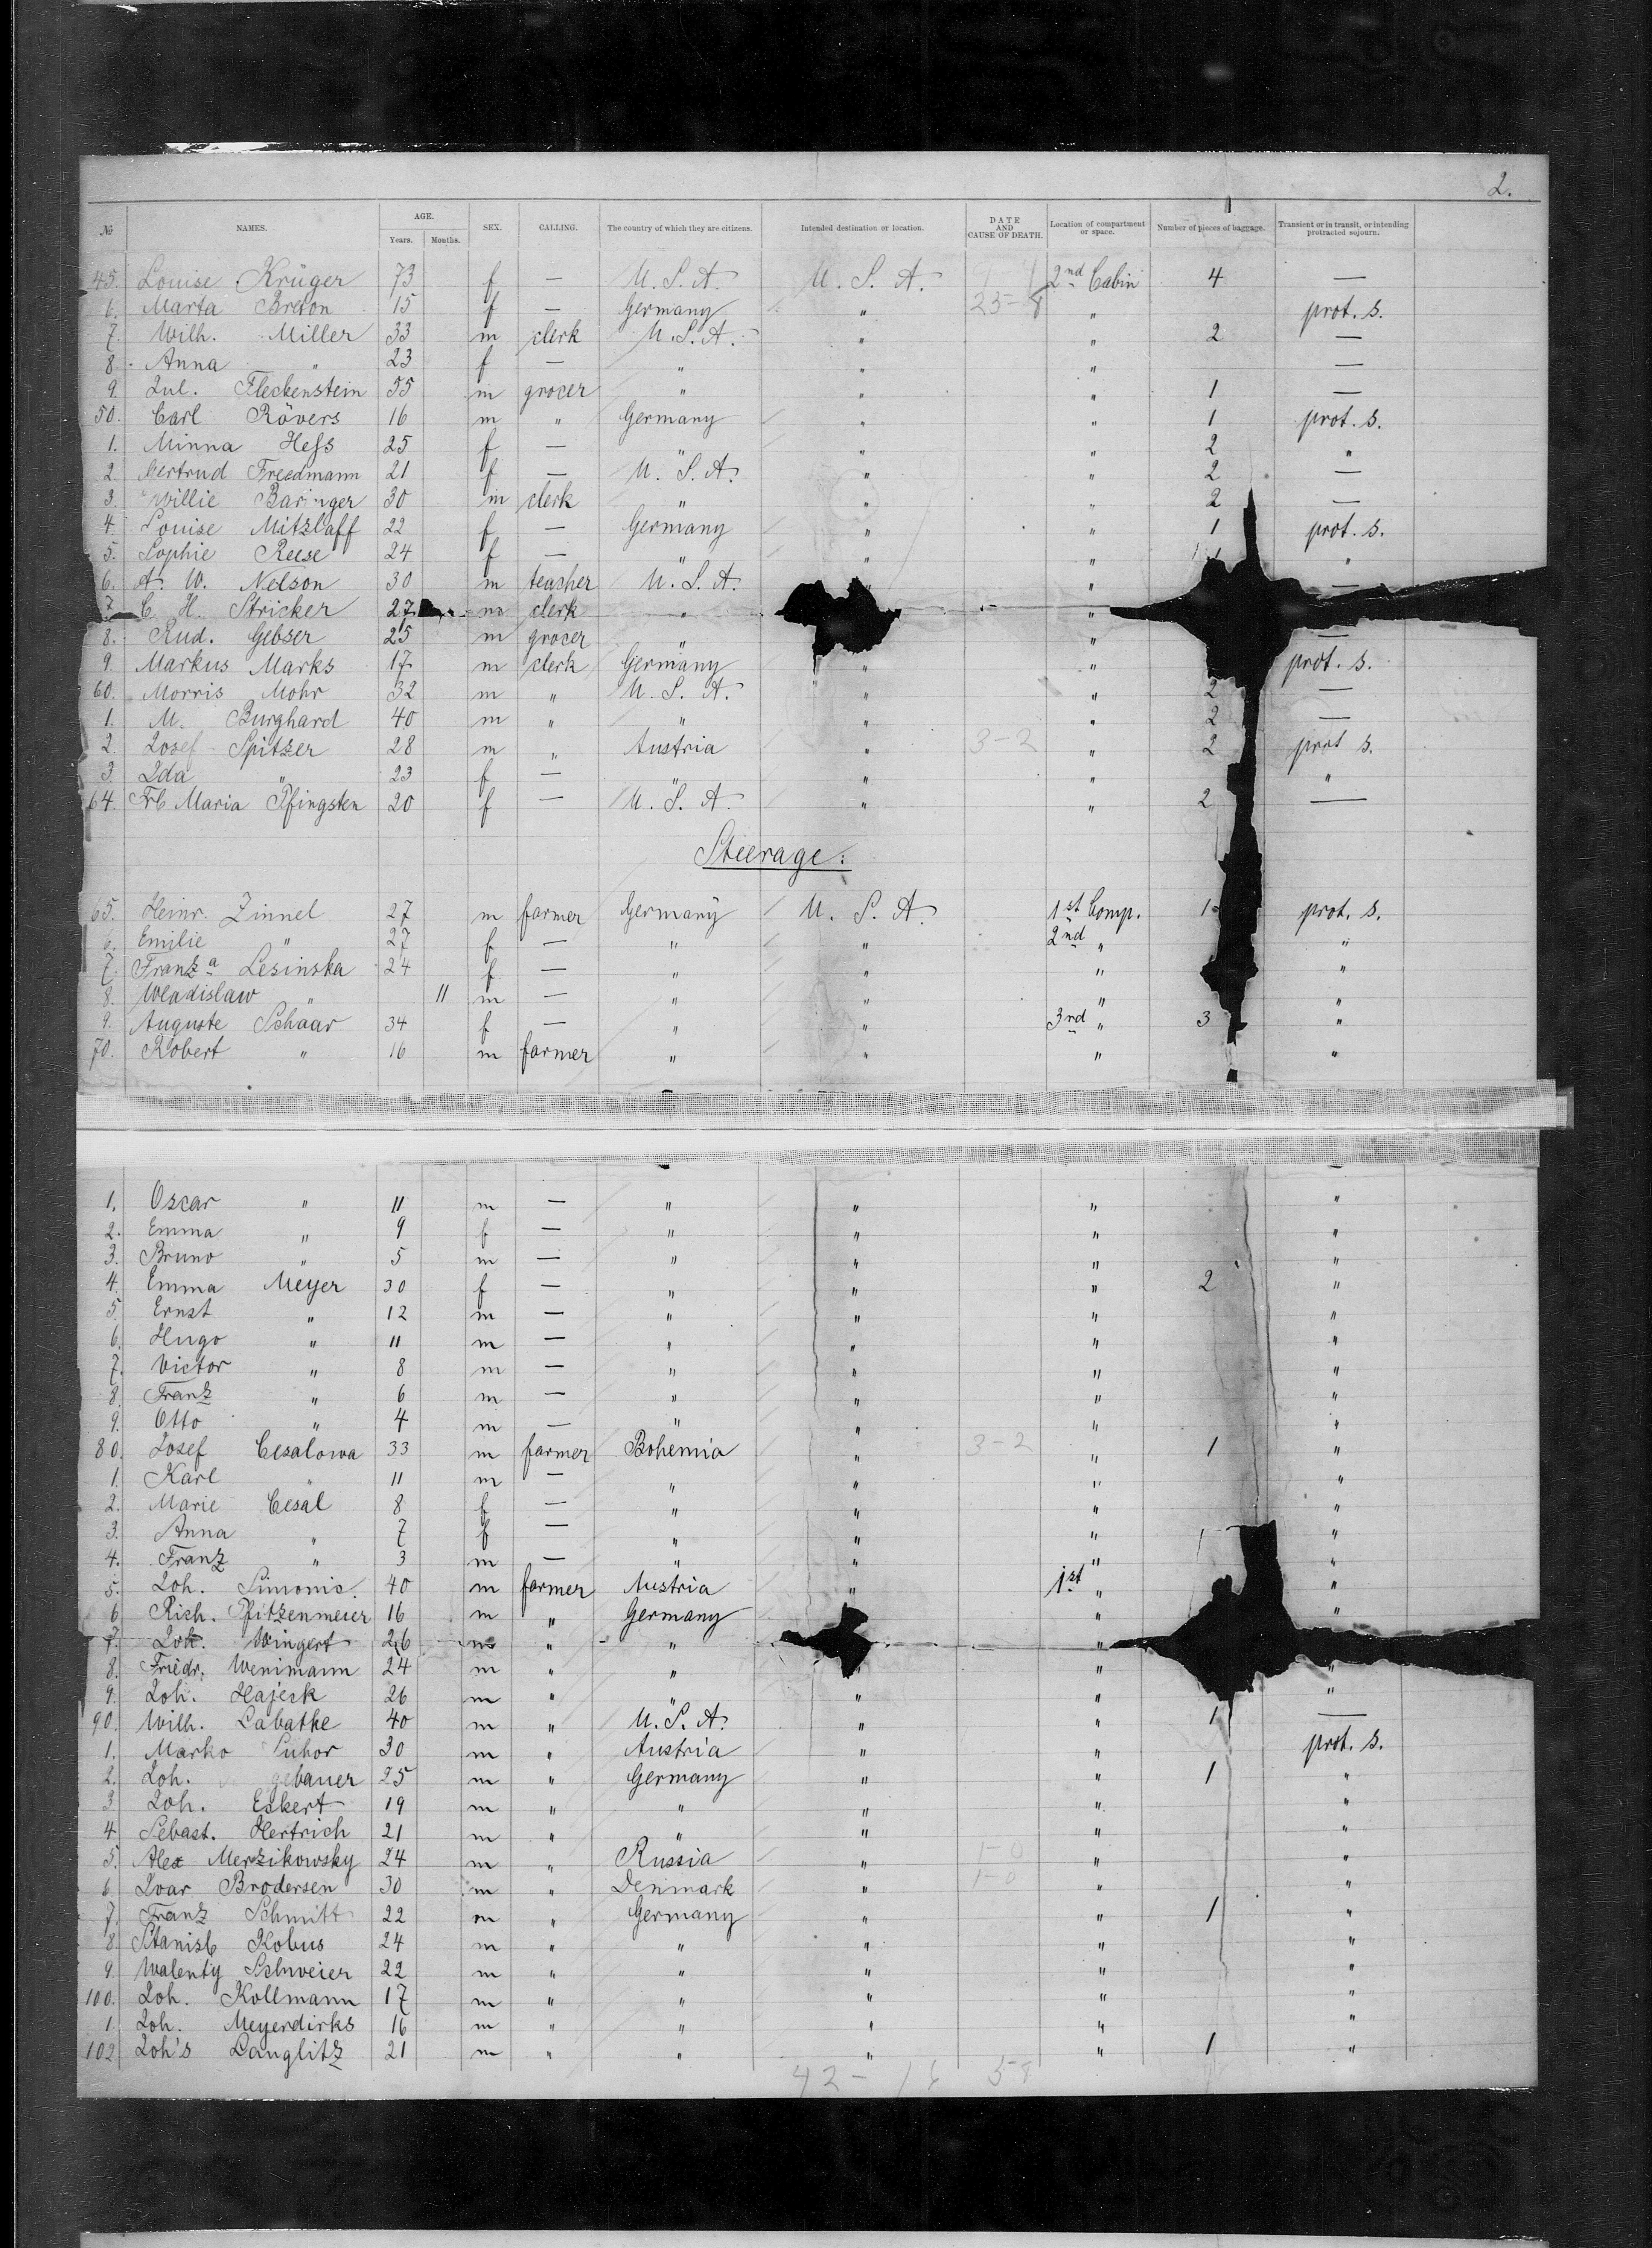 2.
№ NAMES. AGE. Years. Months. SEX. CALLING. The country of which they are citizens. Intended destination or location. DATE AND CAUSE OF DEATH. Location of compartment or space. Number of pieces of baggage. Transient or in transit, or intending protracted sojourn.
45. Louise Krüger 73 f — U. S. A. U. S. A. 2nd Cabin 4 —
6. Marta 15 f — Germany " 23-8 " prot. s.
7. Wilh. Miller 33 m clerk U. S. A. " " 2 —
8. Anna " 23 f — " " " —
9. Jul. Fleckenstein 55 m grocer " " " 1 —
50. Carl Rövers 16 m " Germany " " 1 prot. s.
1. Minna Hess 25 f — " " " 2 "
2. Gertrud Freedmann 21 f — U. S. A. " " 2 —
3. Willie Baringer 30 m clerk " " " 2 —
4. Louise Mitzlaff 22 f — Germany " " 1 prot. s.
5. Sophie Reese 24 f — " " " "
6. A. W. Nelson 30 m teacher U. S. A. " " —
7. C. H. Stricker 27 m clerk " "
8. Rud. Gebser 25 m grocer " " —
9. Markus Marks 17 m clerk Germany " " prot. s.
60. Morris Mohr 32 m " U. S. A. " " 2 —
1. M. Burghard 40 m " " " " 2 —
2. Josef Spitzer 28 m " Austria " 3-2 " 2 prot s.
3. Ida " 23 f — " " " "
64. Frl. Maria Pfingsten 20 f — U. S. A. " " 2 —
Steerage:
65. Heinr. Zinnel 27 m farmer Germany U. S. A. 1st Comp. 1 prot. s.
6. Emilie " 27 f — " " 2nd " "
7. Franza Lesinska 24 f — " " " "
8. Wladislaw " 11 m — " " " "
9. Auguste Schaar 34 f — " " 3rd " 3 "
70. Robert " 16 m farmer " " " "
1. Oscar " 11 m — " " " "
2. Emma " 9 f — " " " "
3. Bruno " 5 m — " " " "
4. Emma Meyer 30 f — " " " 2 "
5. Ernst " 12 m — " " " "
6. Hugo " 11 m — " " " "
7. Victor " 8 m — " " " "
8. Franz " 6 m — " " " "
9. Otto " 4 m — " " " "
80. Josef Cesalowa 33 m farmer Bohemia " 3-2 " 1 "
1. Karl " 11 m — " " " "
2. Marie Cesal 8 f — " " " "
3. Anna " 7 f — " " " "
4. Franz " 3 m — " " " "
5. Joh. Simonic 40 m farmer Austria " 1st " "
6 Rich. Pfitzenmeier 16 m " Germany " "
7. Joh. Wingert 26 m " " "
8. Friedr. Wenimann 24 m " " " " "
9. Joh. Hajesk 26 m " " " " "
90. Wilh. Labatke 40 m " U. S. A. " " 1 —
1. Marko Suhor 30 m " Austria " " prot. s.
2. Joh. gebauer 25 m " Germany " " 1 "
3 Joh. Eskert 19 m " " " " "
4 Sebast. Hertrich 21 m " " " " "
5. Alex Merzikowsky 24 m " Russia " 1-0 " "
6. Ivar Brodersen 30 m " Denmark " 1-0 " "
7. Franz Schmitt 22 m " Germany " " 1 "
8. Stanisl Kobus 24 m " " " " "
9. Walenty Schweier 22 m " " " " "
100. Joh. Kollmann 17 m " " " " "
1. Joh. Meyerdirks 16 m " " " " "
102 Joh's Langlitz 21 m " " " " 1 "